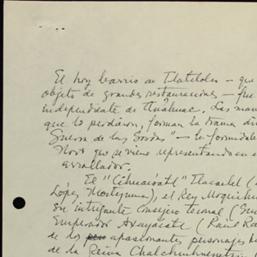 El hoy barrio de Tlatelolco — que
objeto de grandes restauraciones — fue
independiente de Tláhuac. Las
que lo perdieron, forman la trama di
"Guerra de las Gordas" — la formidable
Novo que se viene representando en e
arrollador.
El "Cihuacóatl" Tlacaélel (
López Moctezuma), el Rey Moquihui
su intrigante consejero Teconal (
Emperador Axayácatl (Raúl Ra
de los apasionantes personajes h
de la Reina Chalchiuhnenetzin